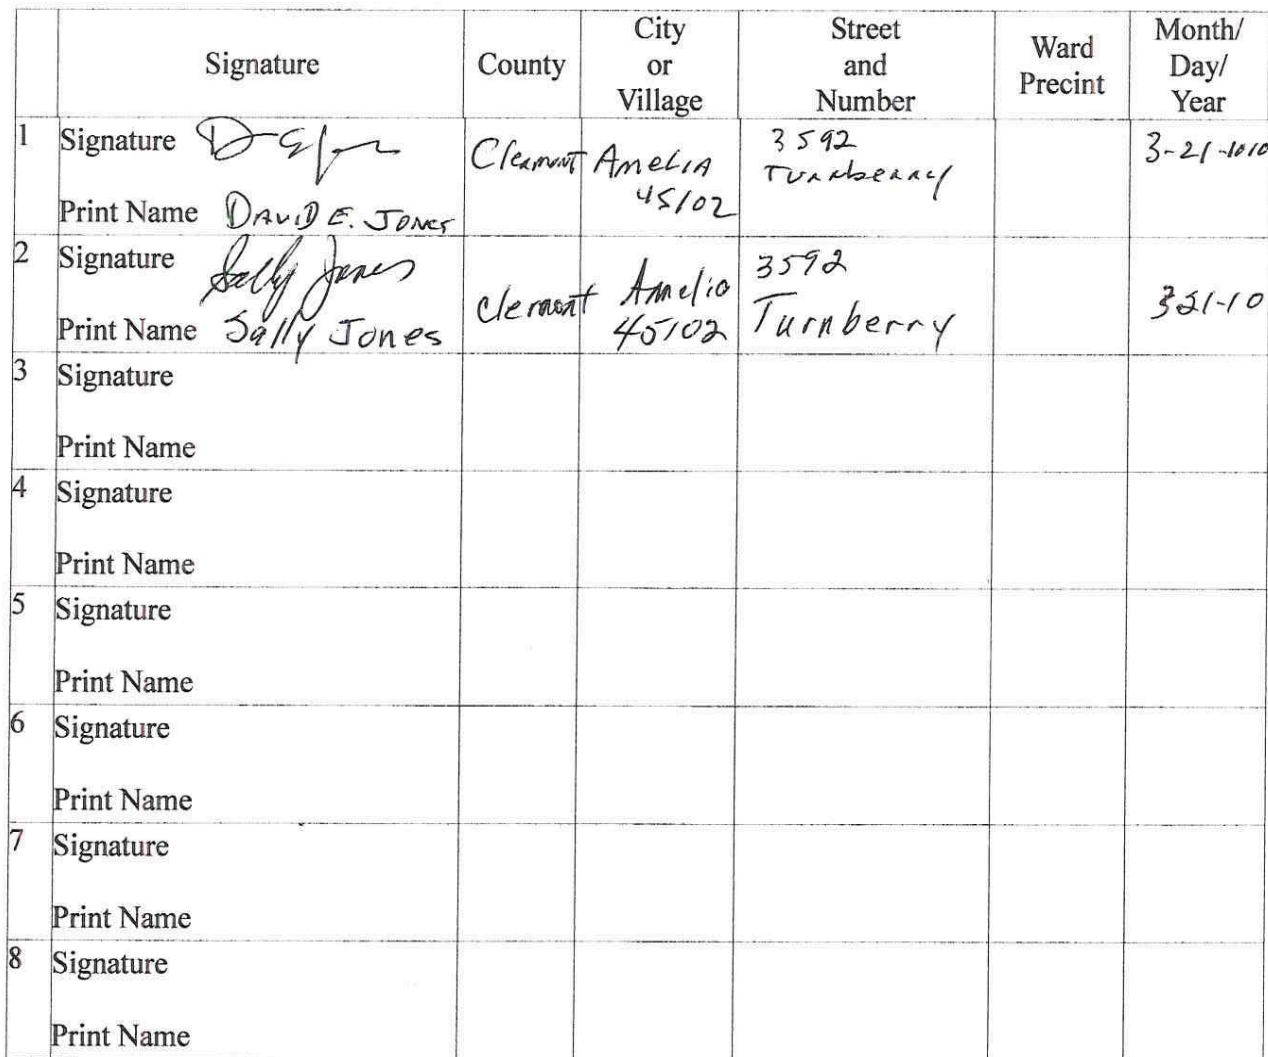 Signature County City or Village Street and Number Ward Precint Month/ Day/ Year
1 Signature
Clermont Amelia 45102 3592 Turnberry 3-21-1010
Print Name DAVID E. JONES
2 Signature Sally Jones
Clermont Amelia 45102 3592 Turnberry 321-10
Print Name Sally Jones
3 Signature
Print Name
4 Signature
Print Name
5 Signature
Print Name
6 Signature
Print Name
7 Signature
Print Name
8 Signature
Print Name